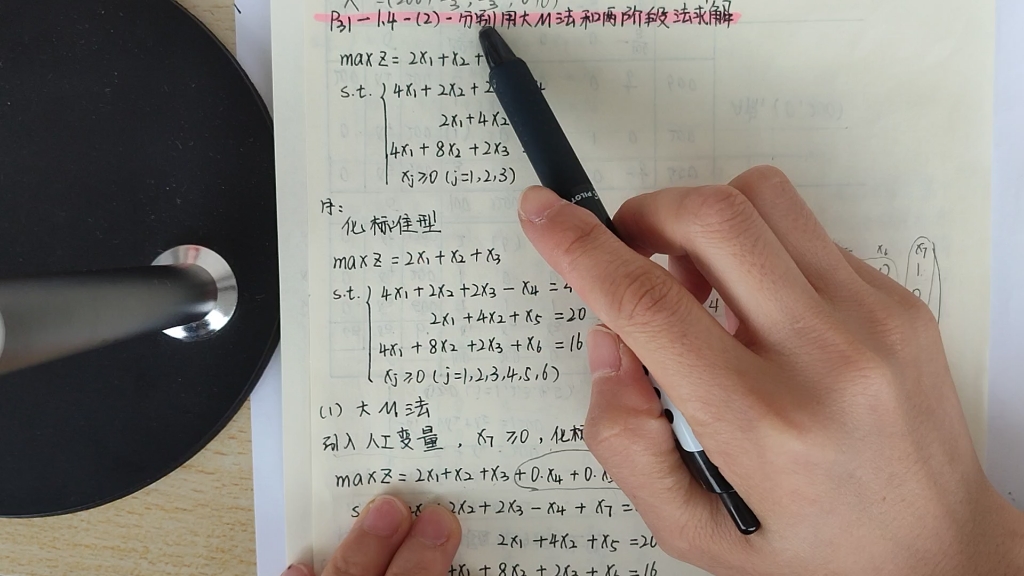 P31-1.4-(2)-分别用大M法和两阶段法求解
max Z = 2x₁+x₂+
s.t. 4x₁+2x₂+2
2x₁+4x₂
4x₁+8x₂+2x₃
xⱼ≥0 (j=1,2,3)
化标准型
max Z = 2x₁+x₂+x₃
s.t. 4x₁+2x₂+2x₃-x₄=4
2x₁+4x₂+x₅=20
4x₁+8x₂+2x₃+x₆=16
xⱼ≥0 (j=1,2,3,4,5,6)
(1) 大M法
引入人工变量, x₇≥0, 化标
max Z = 2x₁+x₂+x₃+0.x₄+0.
2x₂+2x₃-x₄+x₇=
2x₁+4x₂+x₅=20
x₁+8x₂+2x₃+x₆=16
PILOT
x₆
x₇
1
4